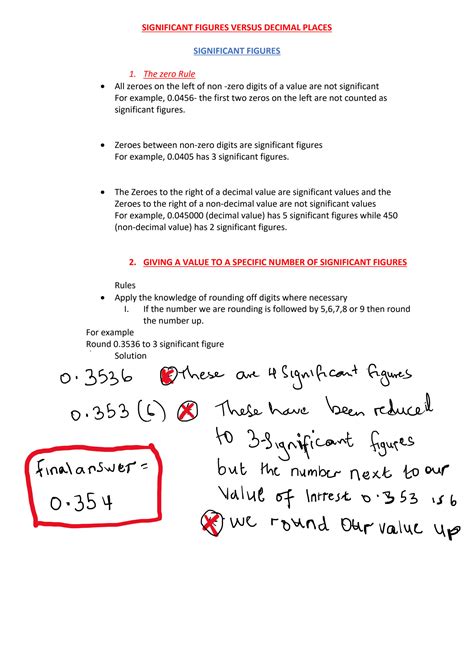 SIGNIFICANT FIGURES VERSUS DECIMAL PLACES
SIGNIFICANT FIGURES
1. The zero Rule
• All zeroes on the left of non -zero digits of a value are not significant
For example, 0.0456- the first two zeros on the left are not counted as
significant figures.
• Zeroes between non-zero digits are significant figures
For example, 0.0405 has 3 significant figures.
• The Zeroes to the right of a decimal value are significant values and the
Zeroes to the right of a non-decimal value are not significant values
For example, 0.045000 (decimal value) has 5 significant figures while 450
(non-decimal value) has 2 significant figures.
2. GIVING A VALUE TO A SPECIFIC NUMBER OF SIGNIFICANT FIGURES
Rules
• Apply the knowledge of rounding off digits where necessary
I. If the number we are rounding is followed by 5,6,7,8 or 9 then round
the number up.
For example
Round 0.3536 to 3 significant figure
Solution
0.3536 These are 4 Significant figures
0.353 (6) These have been reduced
to 3-Significant figures
but the number next to our
Value of Intrest 0.353 is 6
we round our value up
final answer =
0.354